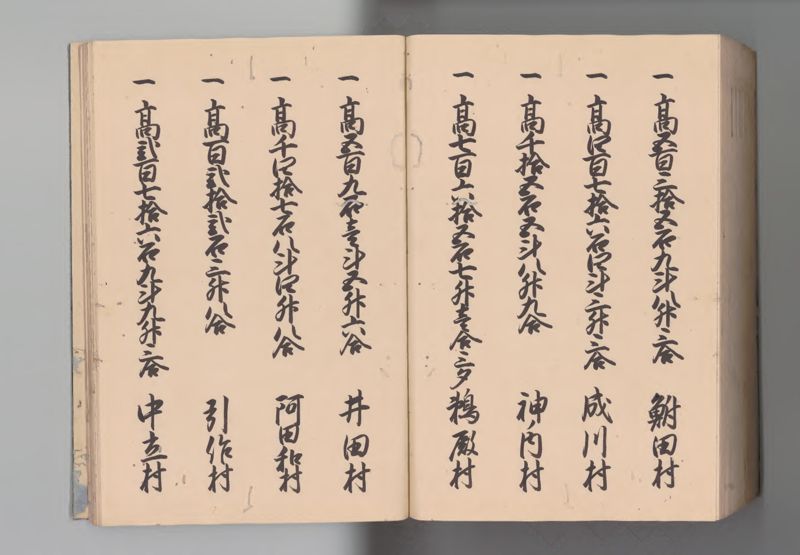 一高五百三拾五石九斗八升三合 鮒田村
一高四百七拾六石四斗三升三合 成川村
一高千拾五石五斗八升九合 神内村
一高七百六拾五石七升壹合三夕 鵜殿村
一高五百九石壹斗五升六合 井田村
一高千四拾七石八斗四升八合 阿田和村
一高百弐拾弐石三升八合 引作村
一高弐百七拾六石九斗九升三合 中立村